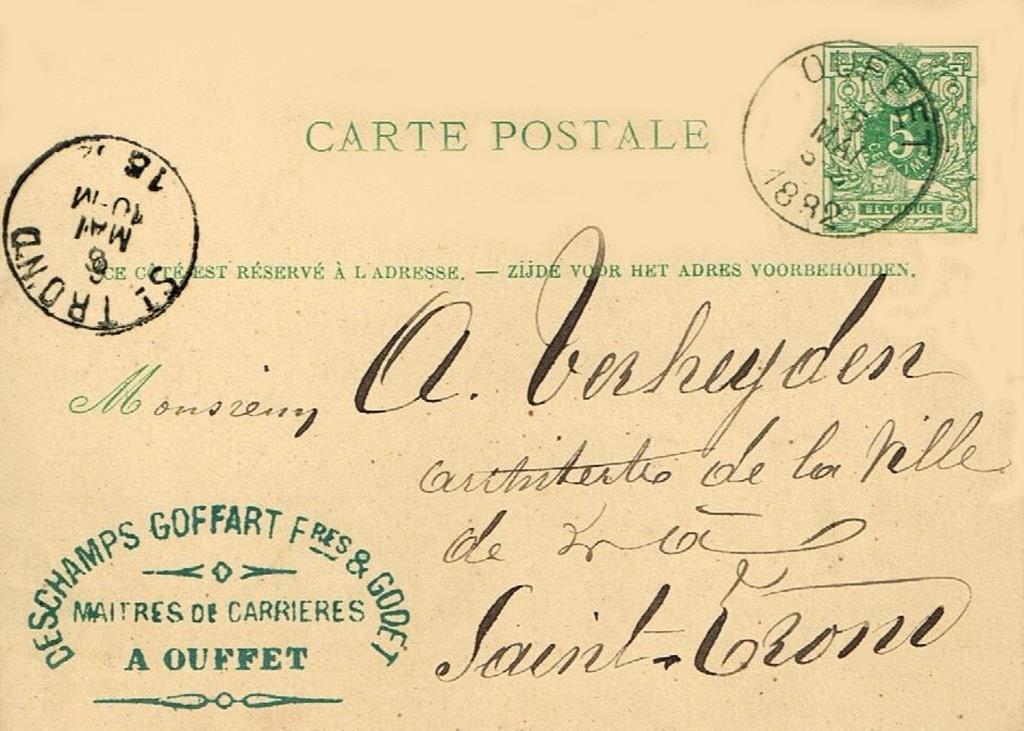 CARTE POSTALE
OUFFET
MAI
1882
5
CENTIMES
BELGIQUE
ST TROND
6
MAI
10-M
18
CE CÔTÉ EST RÉSERVÉ À L'ADRESSE. — ZIJDE VOOR HET ADRES VOORBEHOUDEN.
Monsieur A. Verheyden
architecte de la Ville
de à
Saint-Trond
DESCHAMPS GOFFART FRES & GODET
MAITRES DE CARRIERES
A OUFFET